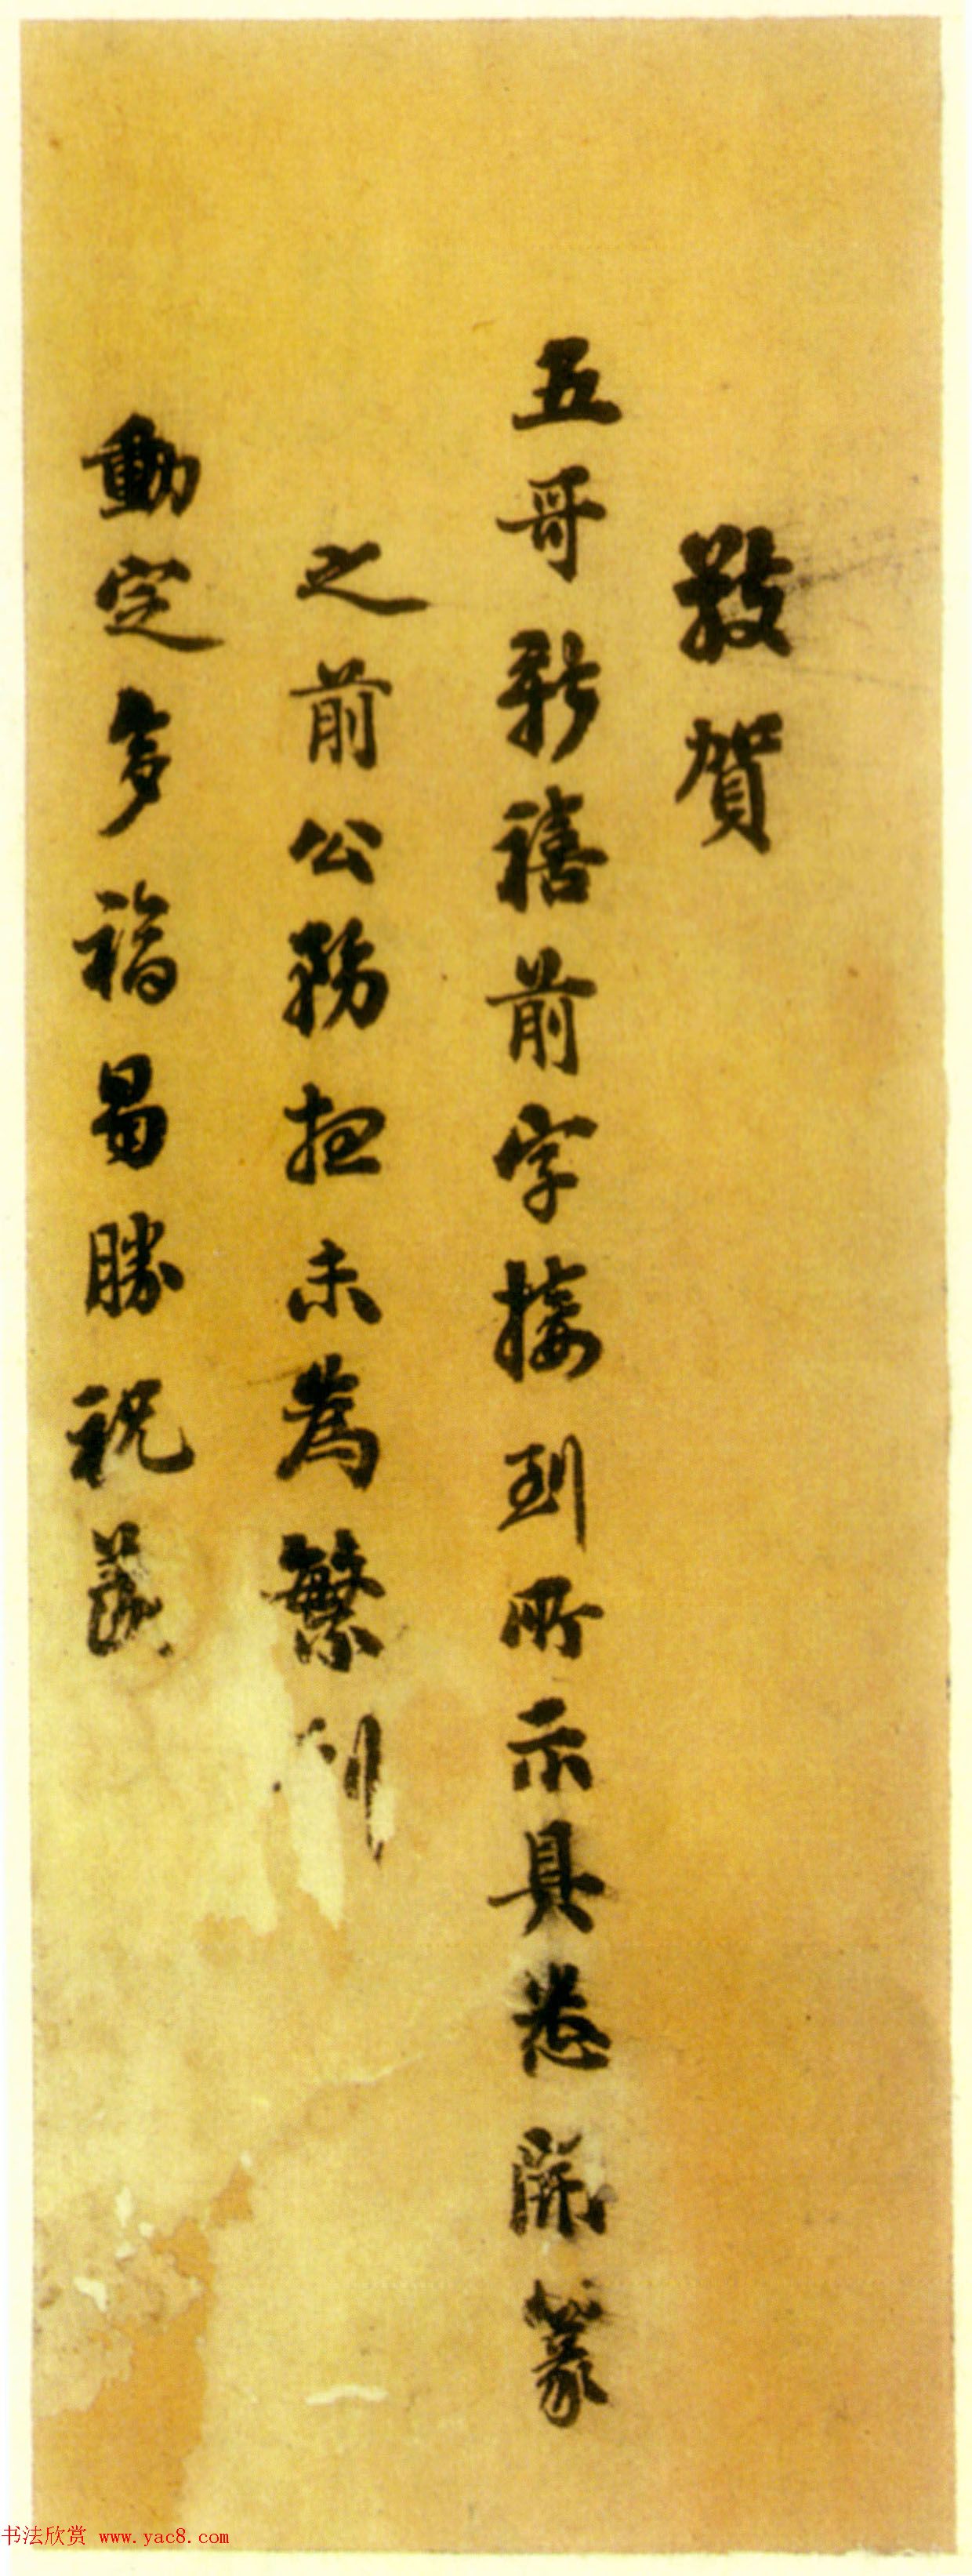 敬賀
五哥新禧前字接到所示具悉開篆
之前公務想未為繁劇
動定多福曷勝祝
书法欣赏 www.yac8.com